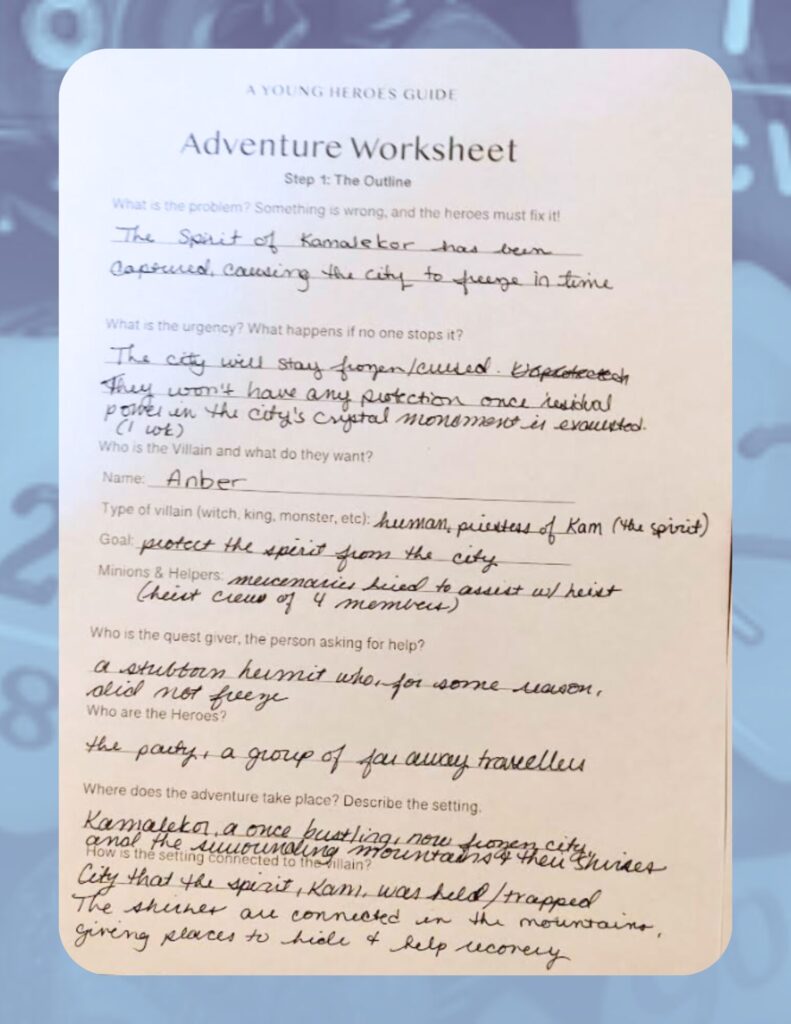 A YOUNG HEROES GUIDE
Adventure Worksheet
Step 1: The Outline
What is the problem? Something is wrong, and the heroes must fix it!
The Spirit of Kamalekor has been
capoured, causing the city to freeze in time
What is the urgency? What happens if no one stops it?
The city will stay frozen/cursed.
They won't have any protection once residual
power in the city's crystal monument is exausted.
(1 wk)
Who is the Villain and what do they want?
Name: Anber
Type of villain (witch, king, monster, etc): human, priestess of Kam (the spirit)
Goal: protect the spirit from the city
Minions & Helpers: mercenaries hired to assist w/ heist
(heist crew of 4 members)
Who is the quest giver, the person asking for help?
a stubborn hermit who, for some reason,
did not freeze
Who are the Heroes?
the party, a group of far away travellers
Where does the adventure take place? Describe the setting.
Kamalekor, a once bustling, now frozen city,
and the surrounding mountains & their shrines
How is the setting connected to the villain?
City that the spirit, Kam, was held/trapped
The shrines are connected in the mountains,
giving places to hide & help recovery